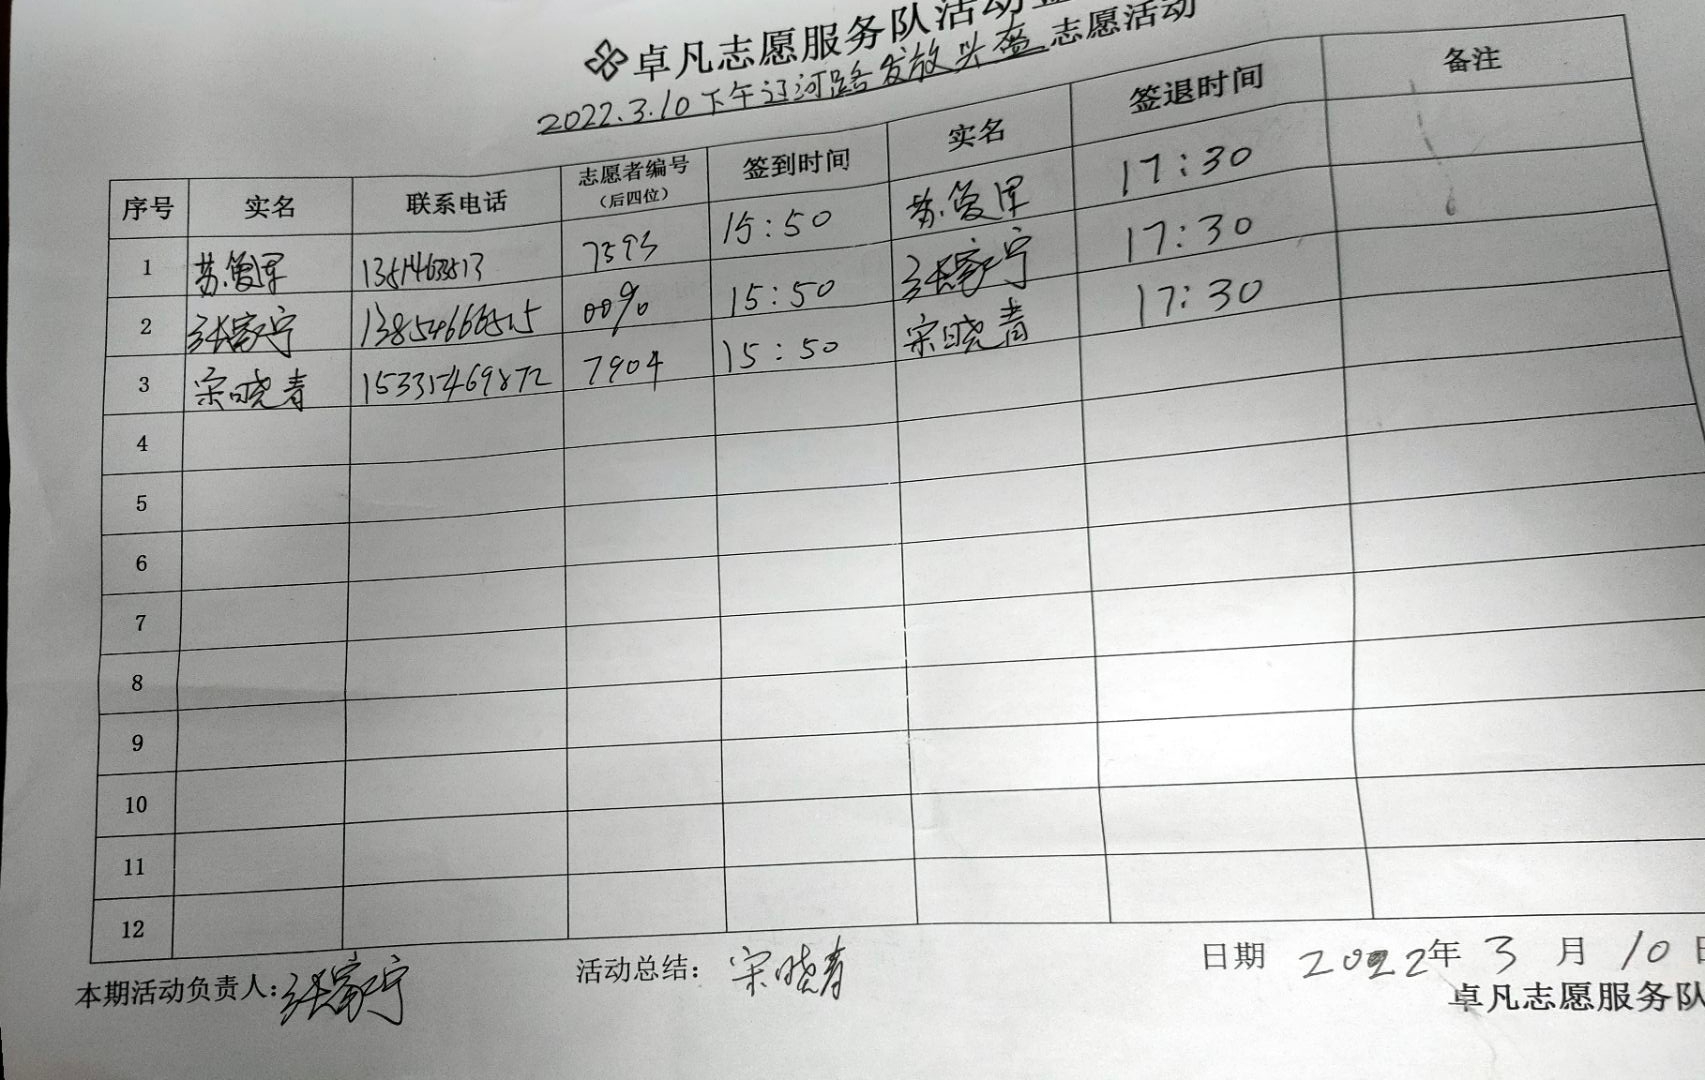 卓凡志愿服务队活动
2022.3.10下午辽河路发放头盔志愿活动
序号 实名 联系电话 志愿者编号（后四位） 签到时间 实名 签退时间 备注
1 苏复军 7593 15:50 苏复军 17:30
2 张家宁 0096 15:50 张家宁 17:30
3 宋晓青 15315469872 7904 15:50 宋晓青 17:30
4
5
6
7
8
9
10
11
12
本期活动负责人：张家宁 活动总结：宋晓青 日期 2022年 3 月 10 日
卓凡志愿服务队